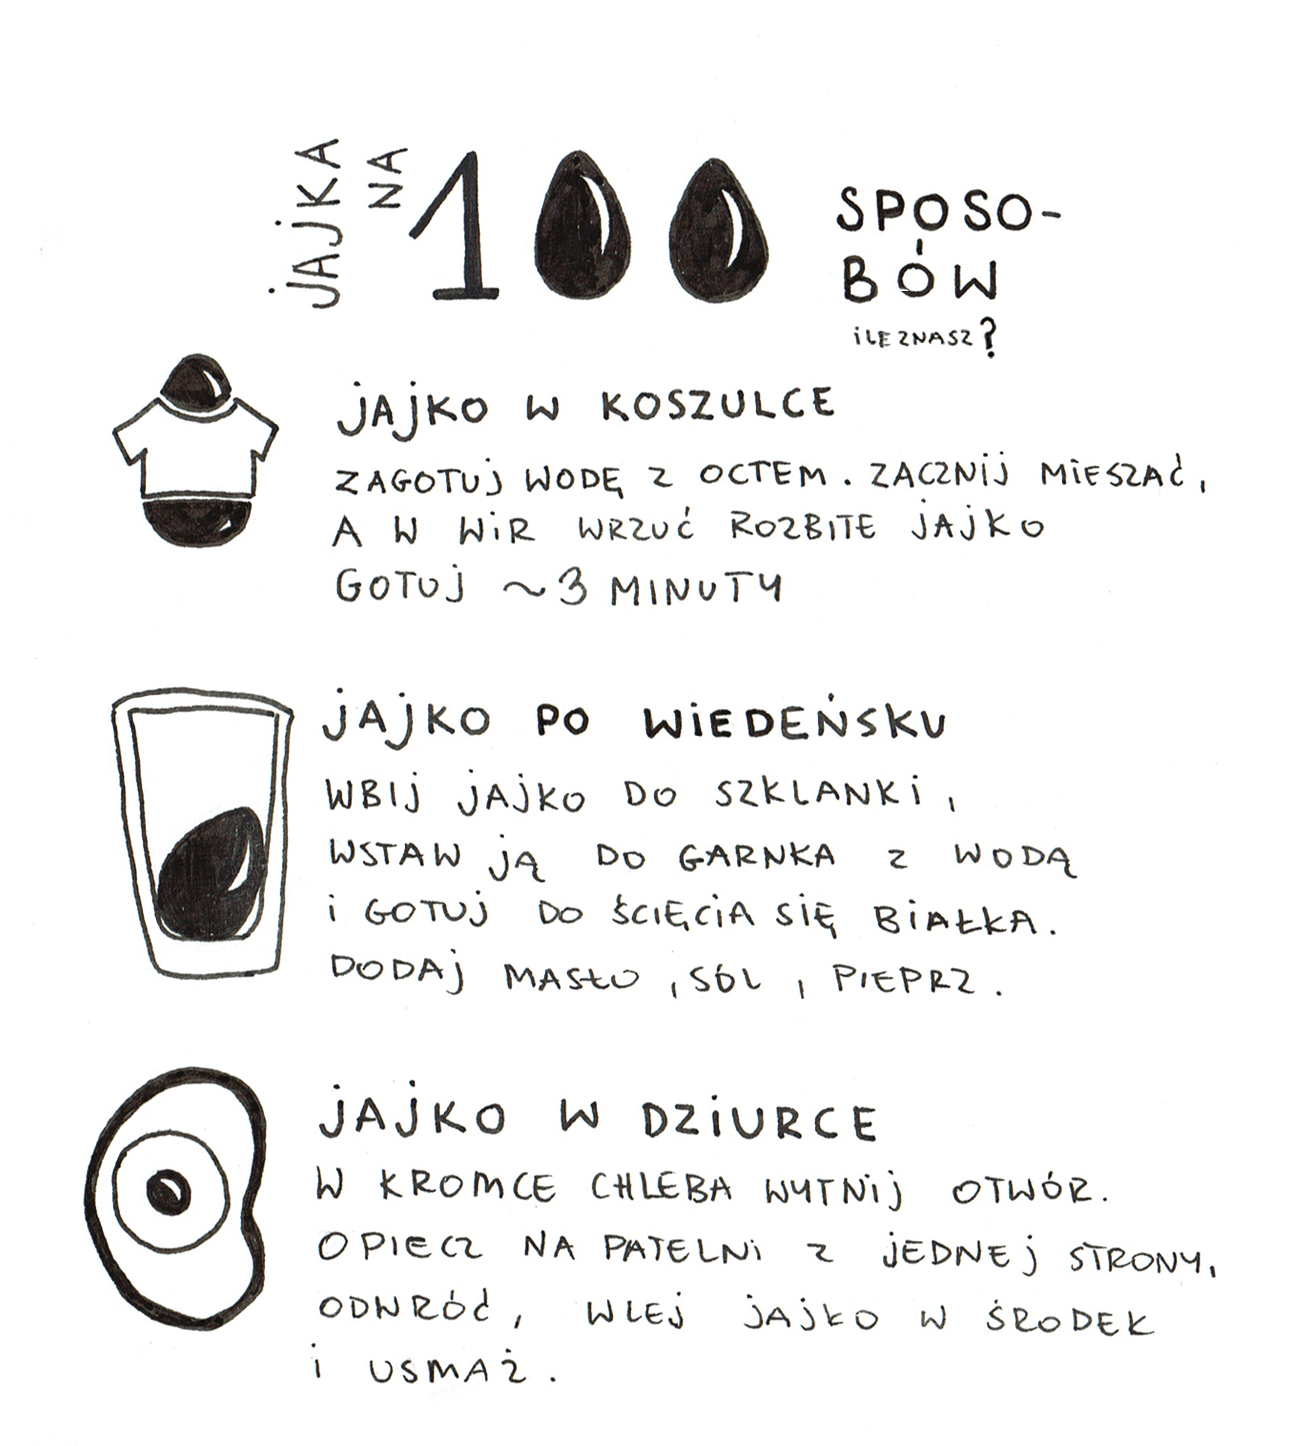 JAJKA
NA
100
SPOSO-
BÓW
ILE ZNASZ?
JAJKO W KOSZULCE
ZAGOTUJ WODĘ Z OCTEM. ZACZNIJ MIESZAĆ,
A W WIR WRZUĆ ROZBITE JAJKO
GOTUJ ~3 MINUTY
JAJKO PO WIEDEŃSKU
WBIJ JAJKO DO SZKLANKI,
WSTAW JĄ DO GARNKA Z WODĄ
I GOTUJ DO ŚCIĘCIA SIĘ BIAŁKA.
DODAJ MASŁO, SÓL, PIEPRZ.
JAJKO W DZIURCE
W KROMCE CHLEBA WYTNIJ OTWÓR.
OPIECZ NA PATELNI Z JEDNEJ STRONY,
ODWRÓĆ, WLEJ JAJKO W ŚRODEK
I USMAŻ.